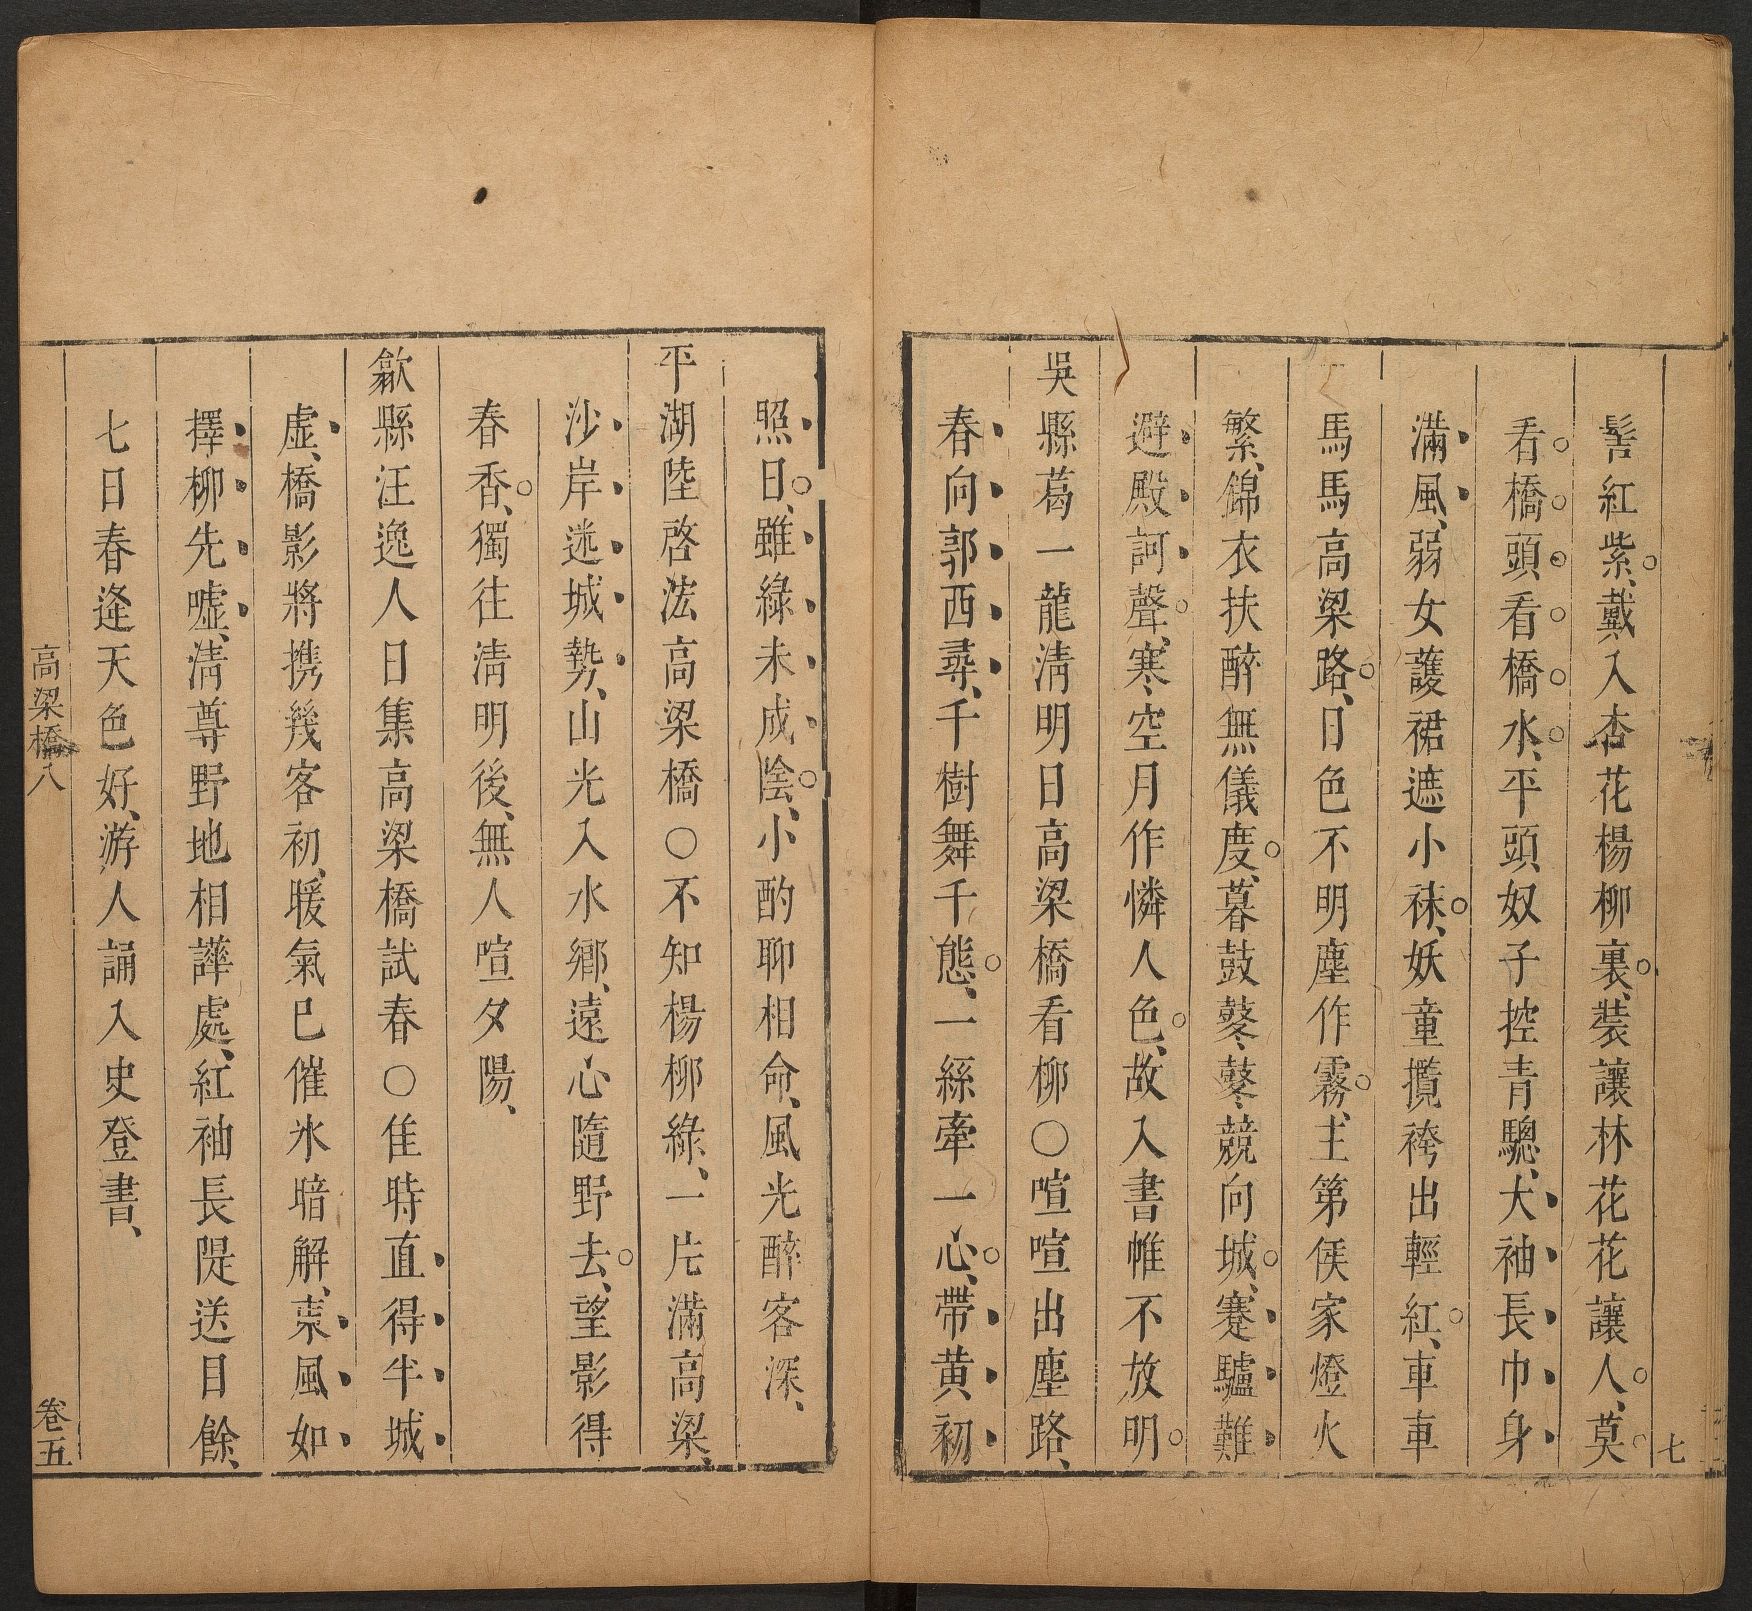 髻紅紫、戴入杏花楊柳裏、裝讓林花花讓人、莫
看橋頭看橋水、平頭奴子控青驄、大袖長巾身
滿風、弱女護裙遮小袜、妖童攬袴出輕紅、車車
馬馬高梁路、日色不明塵作霧、主第侯家燈火
繁、錦衣扶醉無儀度、暮鼓鼕鼕競向城、蹇驢難
避殿訶聲、寒空月作憐人色、故入書帷不放明
吳縣葛一龍淸明日高梁橋看柳○喧喧出塵路、
春向郭西尋、千樹舞千態、一絲牽一心、帶黄初
七
照日、雖綠未成陰、小酌聊相命、風光醉客深、
平湖陸啓浤高梁橋○不知楊柳綠、一片滿高梁、
沙岸迷城勢、山光入水鄉、遠心隨野去、望影得
春香、獨往淸明後、無人喧夕陽、
歙縣汪逸人日集高梁橋試春○佳時直得半城
虛、橋影將携幾客初、暖氣已催氷暗解、柬風如
擇柳先噓、淸尊野地相譁處、紅袖長隄送目餘、
七日春逢天色好、游人誦入史登書、
高梁橋八
卷五